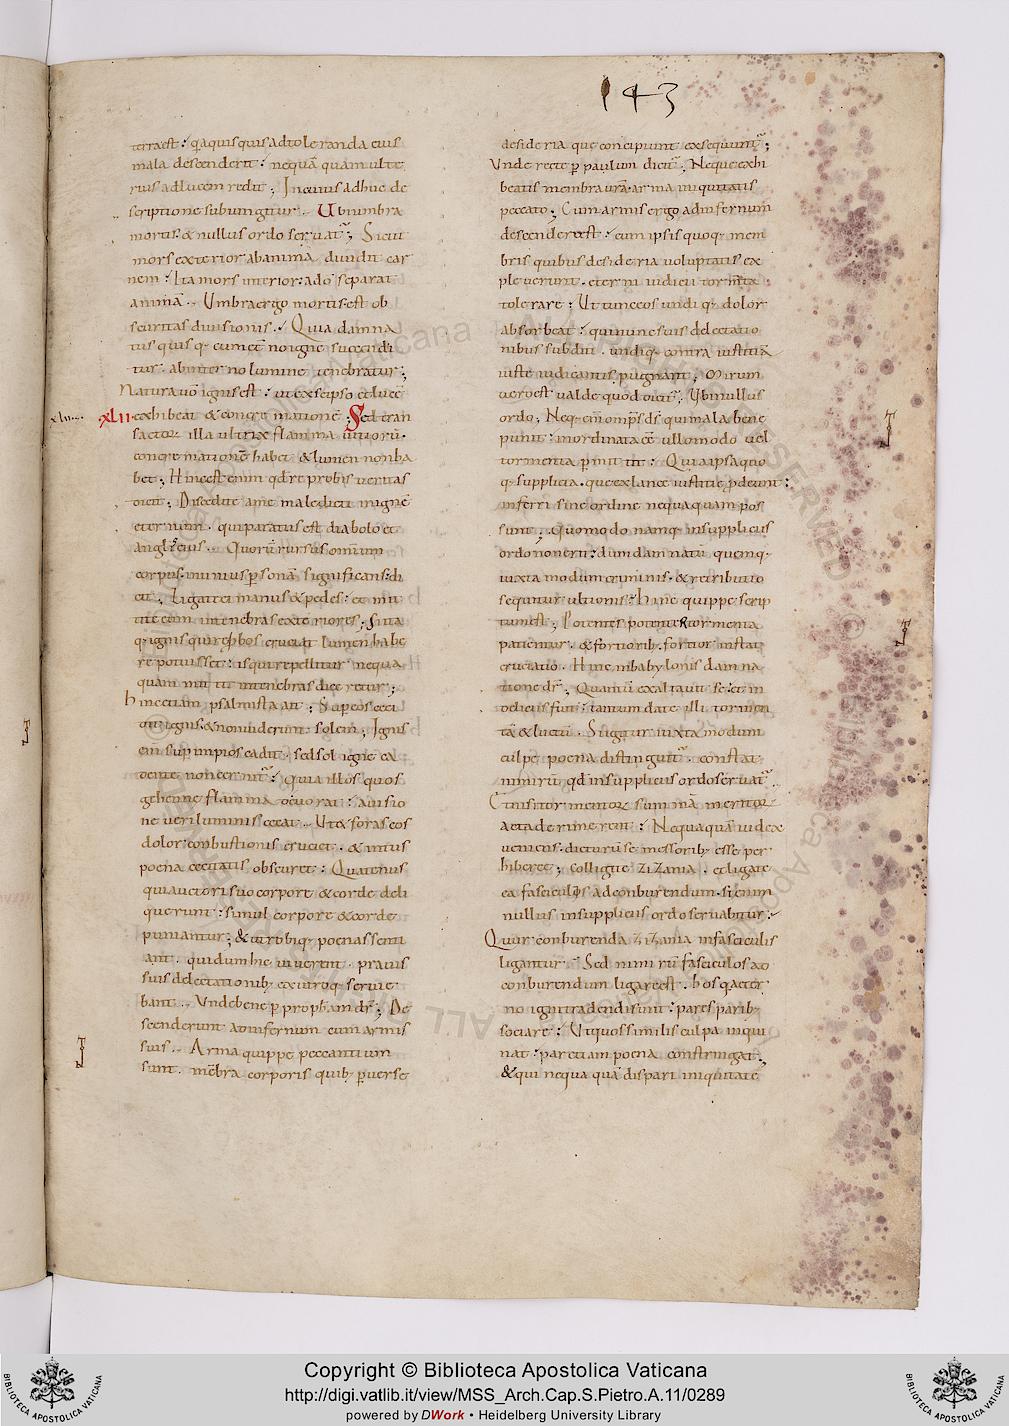 143
terra est : quia quisquis ad toleranda eius
mala descenderit : nequaquã quãm ulte
rius ad lucem redit ; In cuius adhuc de
scriptione subiungitur . Ubi umbra
mortis . & nullus ordo seruat² ; Sicut
mors exterior ab anima diuidit car
nem : Ita mors interior . a dõ separat
animã . Umbra ergo mortis . est ob
scuritas diuisionis . Quia damna
tus quisq; cum etñ no igne succendi
tur . ab interno lumine tenebratur ;
Natura uõ ignis est : ut ex se ipso & lucẽ
XLII exhibeat & concrematione ; Sed tran
sactoꝝ illa ultrix flamma uitioꝝ .
concrematione habet & lumen non ha
bet ; Hinc est enim qd reprobis ueritas
dicit ; Discedite a me maledicti in ignẽ
eternum . qui paratus est diabolo et
anglis eius . Quorũ rursus omnium
corpus . in unius psonã significans : di
cit ; Ligate ei manus & pedes : et mit
tite eum in tenebras exteriores ; Si ita
q; ignis qui reprobos cruciat lumen habe
re potuisset : is qui repellitur nequa
quam mitti in tenebras diceretur ;
Hinc etiam psalmista ait ; Super eos ceci
dit ignis . & non uiderunt solem ; Ignis
em̃ sup impios cadit . sed sol igne ca
dente non cernit² : quia illos quos
gehenne flamma deuorat : a uisio
ne ueri luminis cecat . Ut & foras eos
dolor combustionis cruciet . & intus
poena cecitatis obscuret : Quatenus
qui auctori suo corpore & corde deli
querunt : simul corpore & corde
puniantur ; & utrobiq; poenas senti
ant . qui dum hic uiuerent . prauis
suis delectationib; ex utroq; seruie
bant . Unde bene p prophãm dr̃ ; De
scenderunt ad infernum cum armis
suis . Arma quippe peccantium
sunt . mẽbra corporis quib; peruerse
desideria que concipiunt exsequunt² ;
Unde recte p paulum dicit² . Neque exhi
beatis membra ura arma iniquitatis
peccato ; Cum armis ergo ad infernum
descendere est : cum ipsis quoq; mem
bris quibus desideria uoluptatis ex
pleuerunt . eterni iudicii tormenta
tolerare : Ut tunc eos undiq; dolor
absorbeat : qui nunc suis delectatio
nibus subditi . undiq; contra iustitiã
iuste iudicantis pugnant ; Mirum
uero est ualde quod dicit² . Ubi nullus
ordo ; Neq; em̃ omps ds̃ qui mala bene
punit : inordinata eẽ ullomodo uel
tormenta permittit : Quia ipsa quo
q; supplicia . que ex lance iustitie prodeunt :
inferri sine ordine nequaquam pos
sunt . Quomodo namq; in suppliciis
ordo non erit : dum damnatũ quemq;
iuxta modum criminis . & retributio
sequitur ultionis ? Hinc quippe scrip
tum est ; Potentes potenter tormenta
patientur . & fortiorib; . fortior instat
cruciatio . Hinc in babylonis damna
tione dr̃ ; Quantũ exaltauit se : et in
deliciis fuit : tantum date illi tormen
tũ & luctũ . Si igitur iuxta modum
culpe poena distinguit² . constat
nimirũ qd in suppliciis ordo seruat²
Cuius tormentoꝝ summã meritoꝝ
acta dirimerent : Nequaquã iudex
ueniens . dicturũ se messorib; esse per
hiberet ; Colligite zizania . et ligate
ea fasciculis ad conburendum . si enim
nullus in suppliciis ordo seruabitur .
Quur conburenda zizania in fasciculis
ligantur . Sed nimirũ fasciculos ad
conburendum ligare est . hos q; eter
no igni tradendi sunt : pares parib;
sociare : Ut quos similis culpa inqui
nat : par etiam poena constringat .
& qui nequaquã dispari iniquitate
Copyright © Biblioteca Apostolica Vaticana
http://digi.vatlib.it/view/MSS_Arch.Cap.S.Pietro.A.11/0289
powered by DWork • Heidelberg University Library
BIBLIOTECA APOSTOLICA VATICANA
BIBLIOTECA APOSTOLICA VATICANA